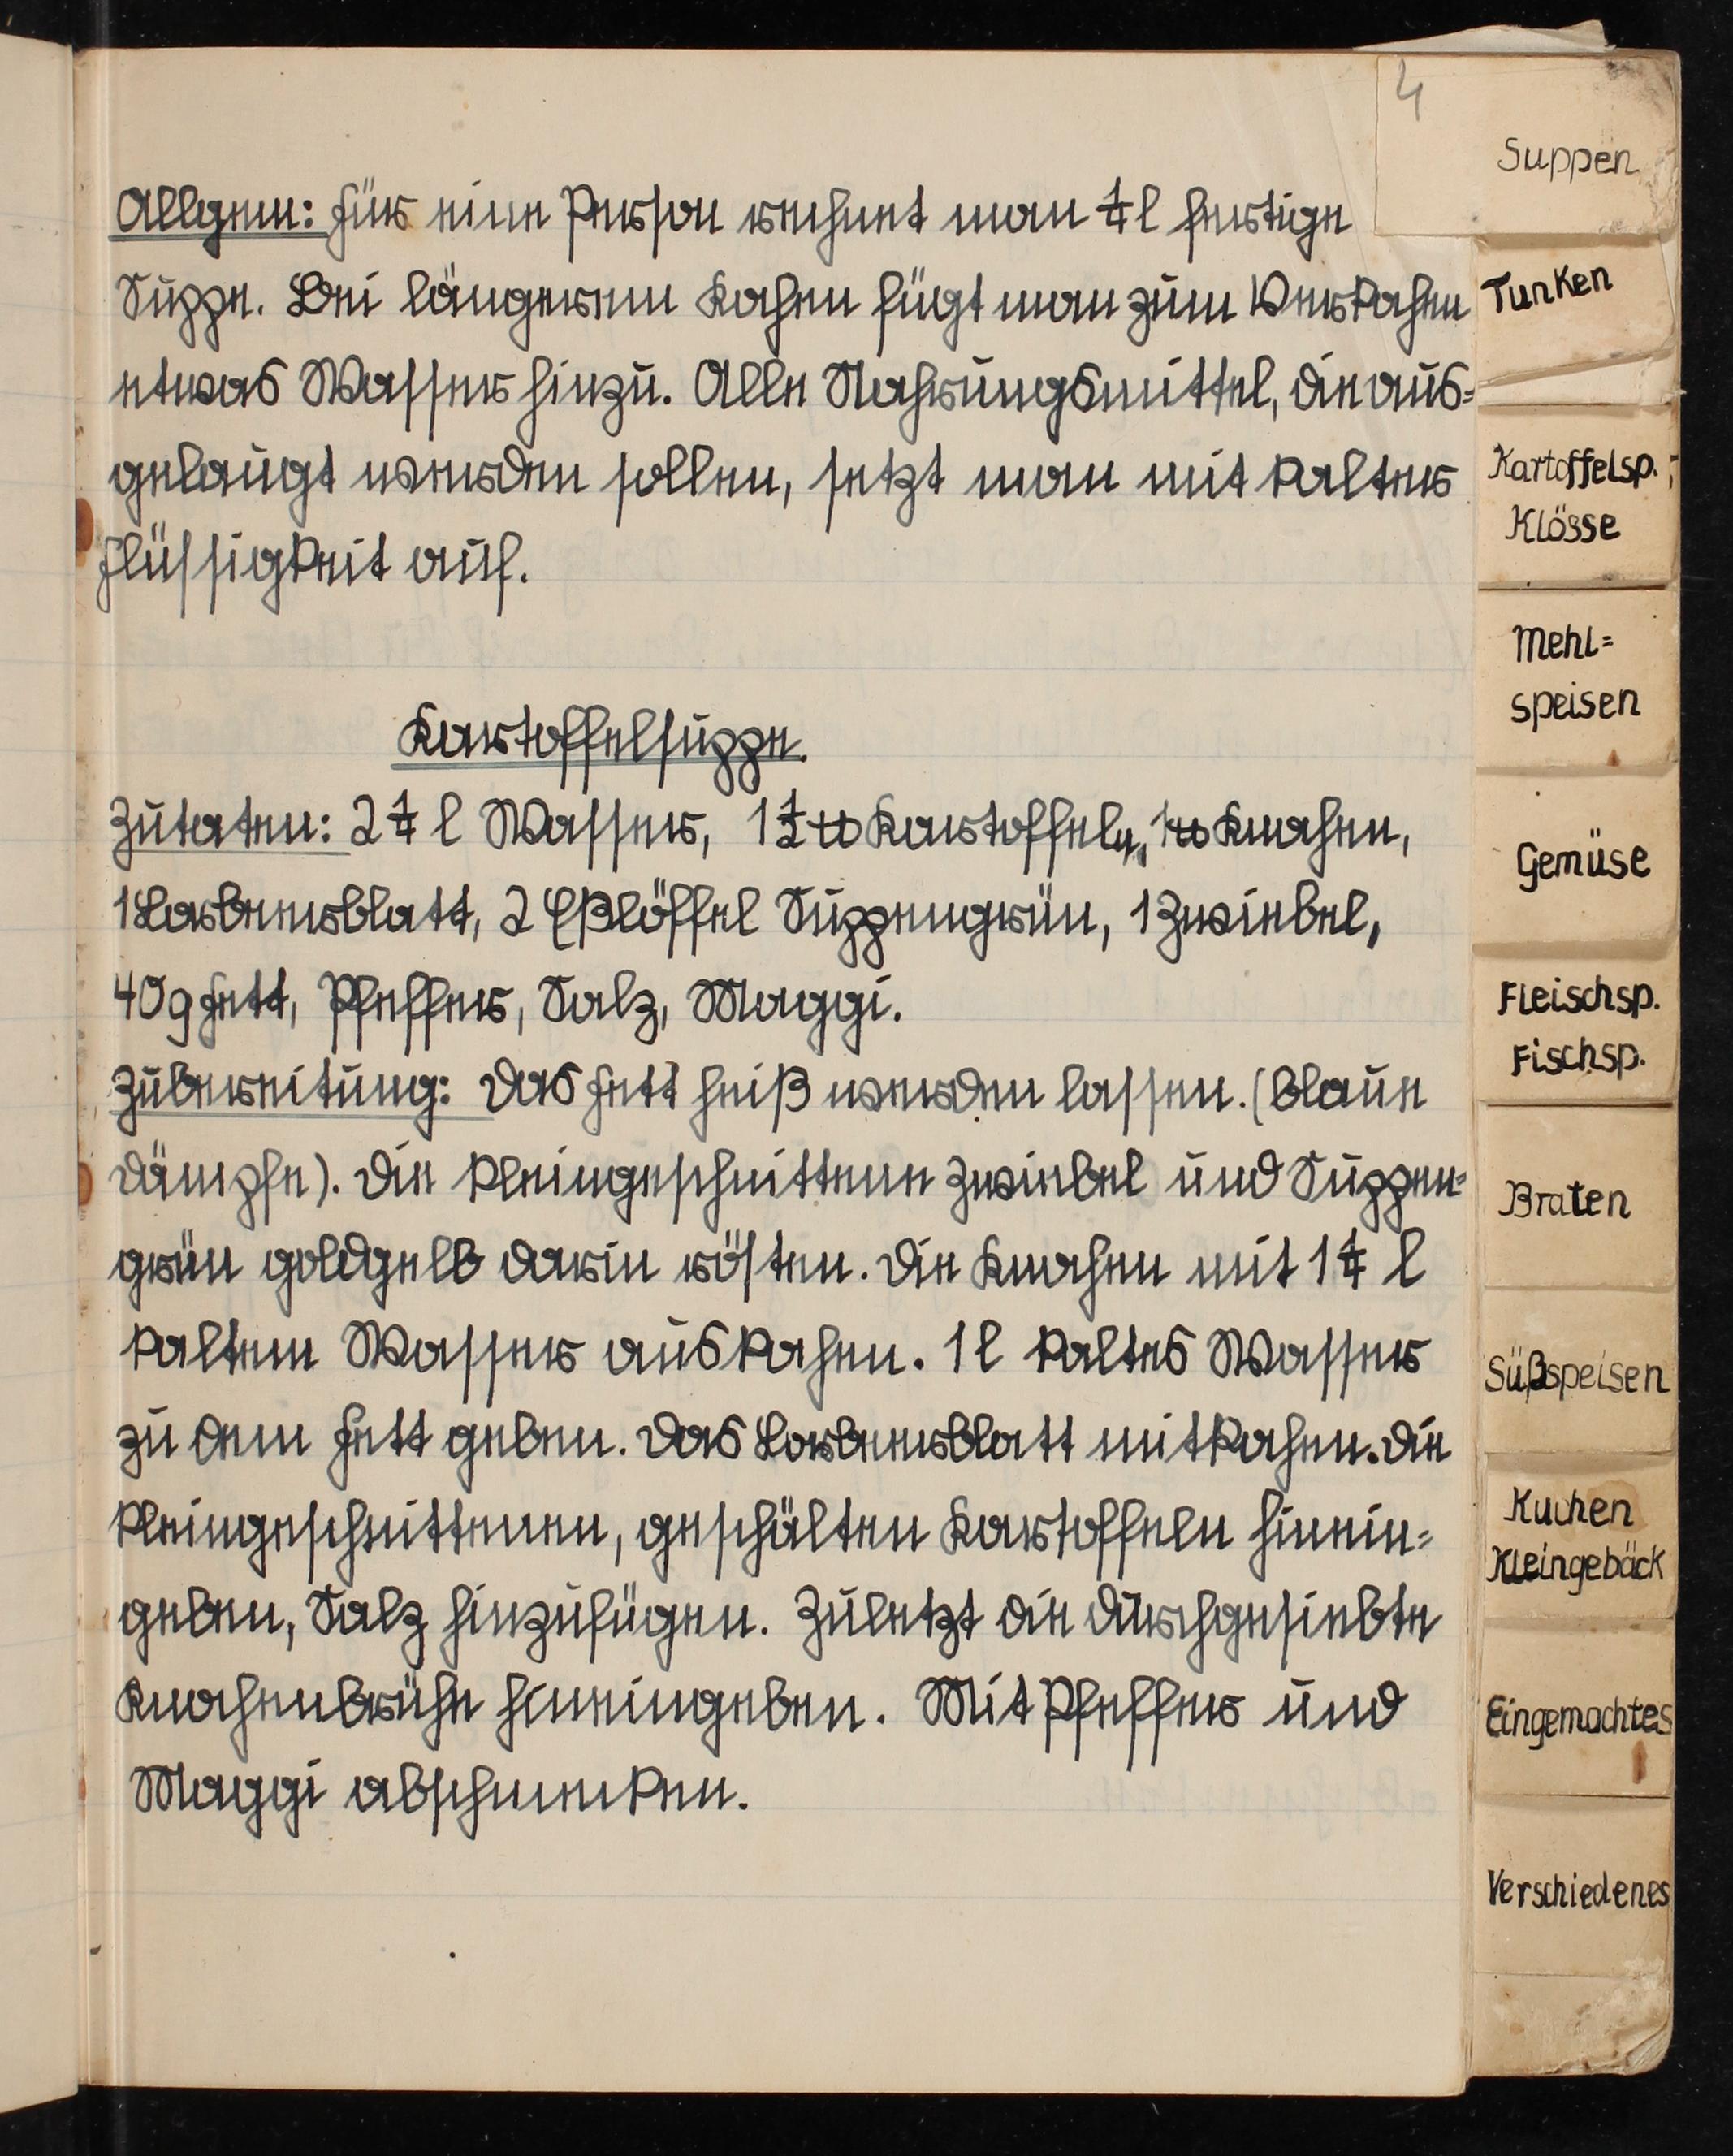 4
Allgem: Für eine Person rechnet man ¼ l fertige
Suppe. Bei längerem Kochen fügt man zum Verkochen
etwas Wasser hinzu. Alle Nahrungsmittel, die aus=
gelaugt werden sollen, setzt man mit kalter
Flüssigkeit auf.
Kartoffelsuppe.
Zutaten: 2¼ l Wasser, 1½ ℔ Kartoffeln, 1 ℔ Knochen,
1 Lorbeerblatt, 2 Eßlöffel Suppengrün, 1 Zwiebel,
40 g Fett, Pfeffer, Salz, Maggi.
Zubereitung: Das Fett heiß werden lassen. (Blaue
Dämpfe). Die kleingeschnittene Zwiebel und Suppen=
grün goldgelb darin rösten. Die Knochen mit 1¼ l
kaltem Wasser auskochen. 1 l kaltes Wasser
zu dem Fett geben. Das Lorbeerblatt mitkochen. Die
kleingeschnittenen, geschälten Kartoffeln hinein=
geben, Salz hinzufügen. Zuletzt die durchgesiebte
Knochenbrühe hineingeben. Mit Pfeffer und
Maggi abschmecken.
Suppen
Tunken
Kartoffelsp.,
Klösse
Mehl=
speisen
Gemüse
Fleischsp.
Fischsp.
Braten
Süßspeisen
Kuchen
Kleingebäck
Eingemachtes
Verschiedenes